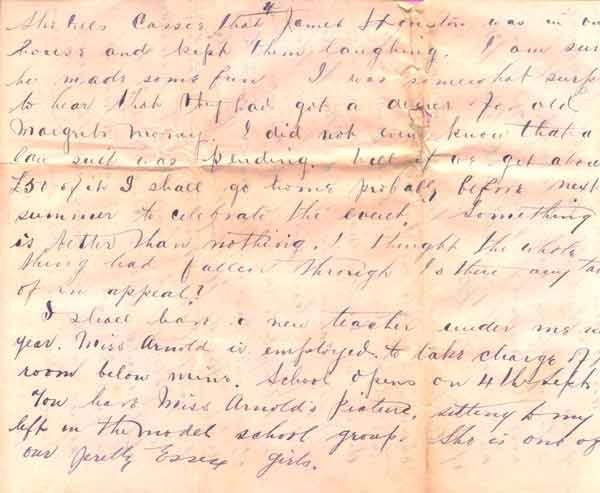 She tells Cassie that James Houston was in our
house and kept them laughing. I am sur
he made some fun I was somewhat surp
to hear that they had got a decree for old
Margrets money. I did not even know that a
law suit was pending. Well if we get about
£50 of it I shall go home probably before next
summer to celebrate the event. Something
is better than nothing. I thought the whole
thing had fallen through Is there any tal
of an appeal?
I shall have a new teacher under me n
year. Miss Arnold is employed to take charge of
room below mine. School opens on 4th Sept
You have Miss Arnold's picture, sitting to my
left in the model school group. She is one of
our pretty Essex girls.